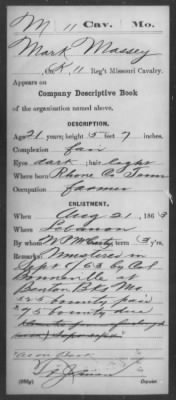 M 11 Cav. Mo.
Mark Massey
Co. K, 11 Reg't Missouri Cavalry.
Appears on
Company Descriptive Book
of the organization named above.
DESCRIPTION.
Age 21 years; height 5 feet 7 inches.
Complexion fair
Eyes dark; hair light
Where born Rhone Co. Tenn
Occupation farmer
ENLISTMENT.
When Aug 21, 1863
Where Lebanon
By whom term 3 y'rs.
Remarks: Mustered in
Sept /63 by Col
at
Benton Bks Mo.
25 bounty paid
75 bounty due
(356g) Copyist.